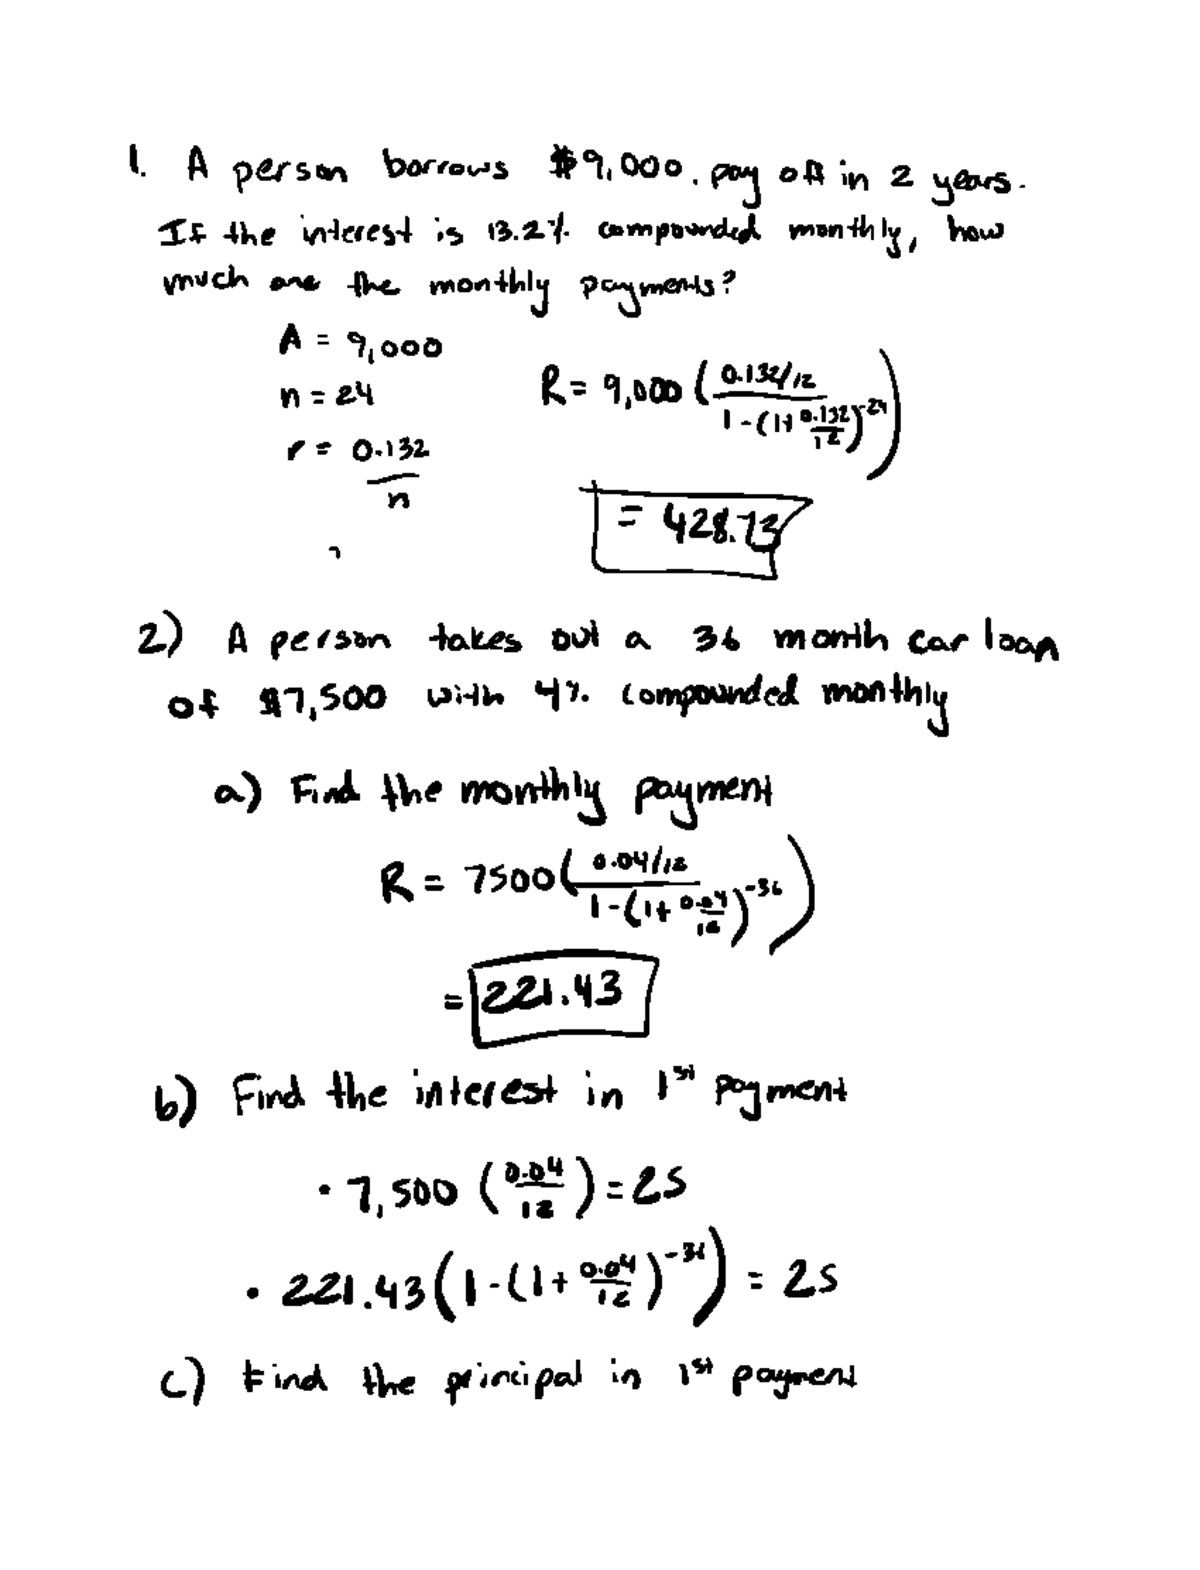 1. A person borrows $9,000. pay off in 2 years.
If the interest is 13.2% compounded monthly, how
much are the monthly payments?
A = 9,000
n = 24
r = 0.132/n
R = 9,000 ( (0.132/12) / (1-(1+0.132/12)^-24) )
= 428.73
2) A person takes out a 36 month car loan
of $7,500 with 4% compounded monthly
a) Find the monthly payment
R = 7500 ( (0.04/12) / (1-(1+0.04/12)^-36) )
= 221.43
b) Find the interest in 1st payment
• 7,500 (0.04/12) = 25
• 221.43 (1-(1+0.04/12)^-36) = 25
c) Find the principal in 1st payment